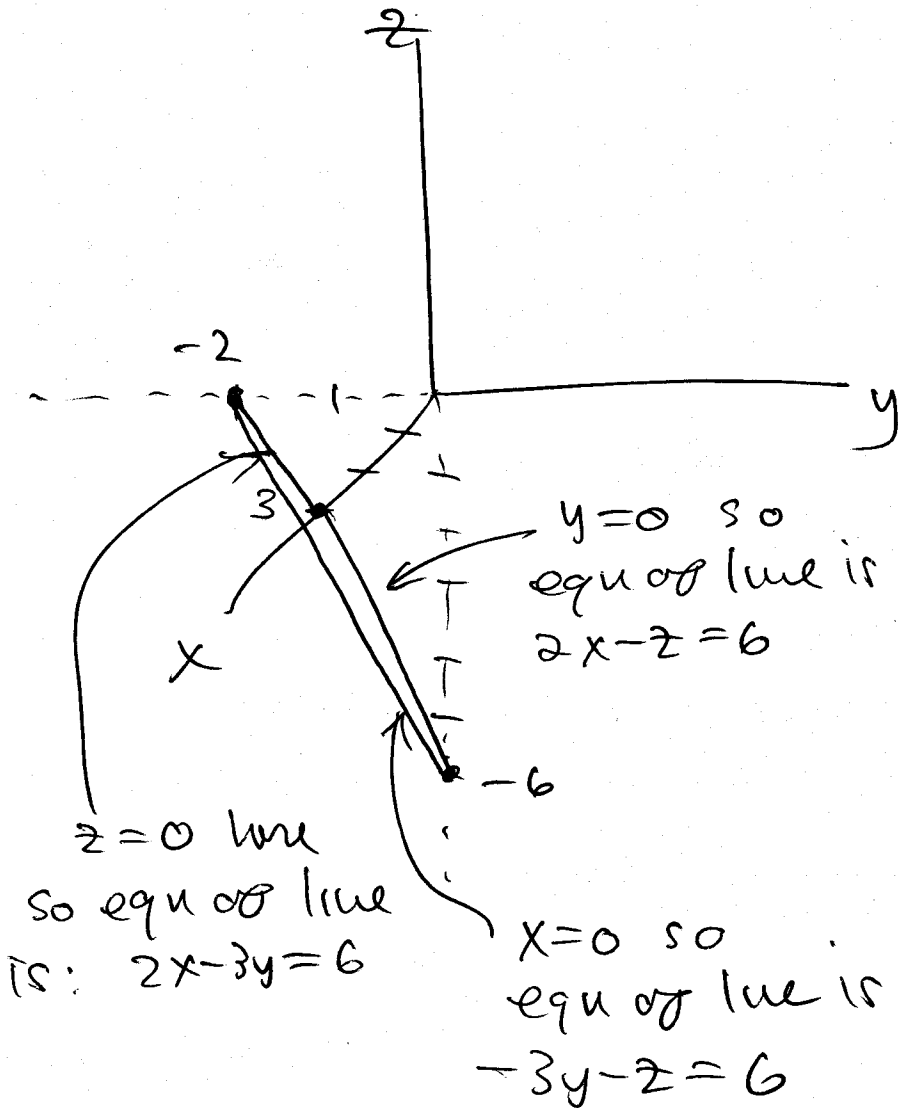 z
-2
1
y
3
x
y=0 so
equ of line is
2x-z=6
-6
z=0 here
so equ of line
is: 2x-3y=6
x=0 so
equ of line is
-3y-z=6